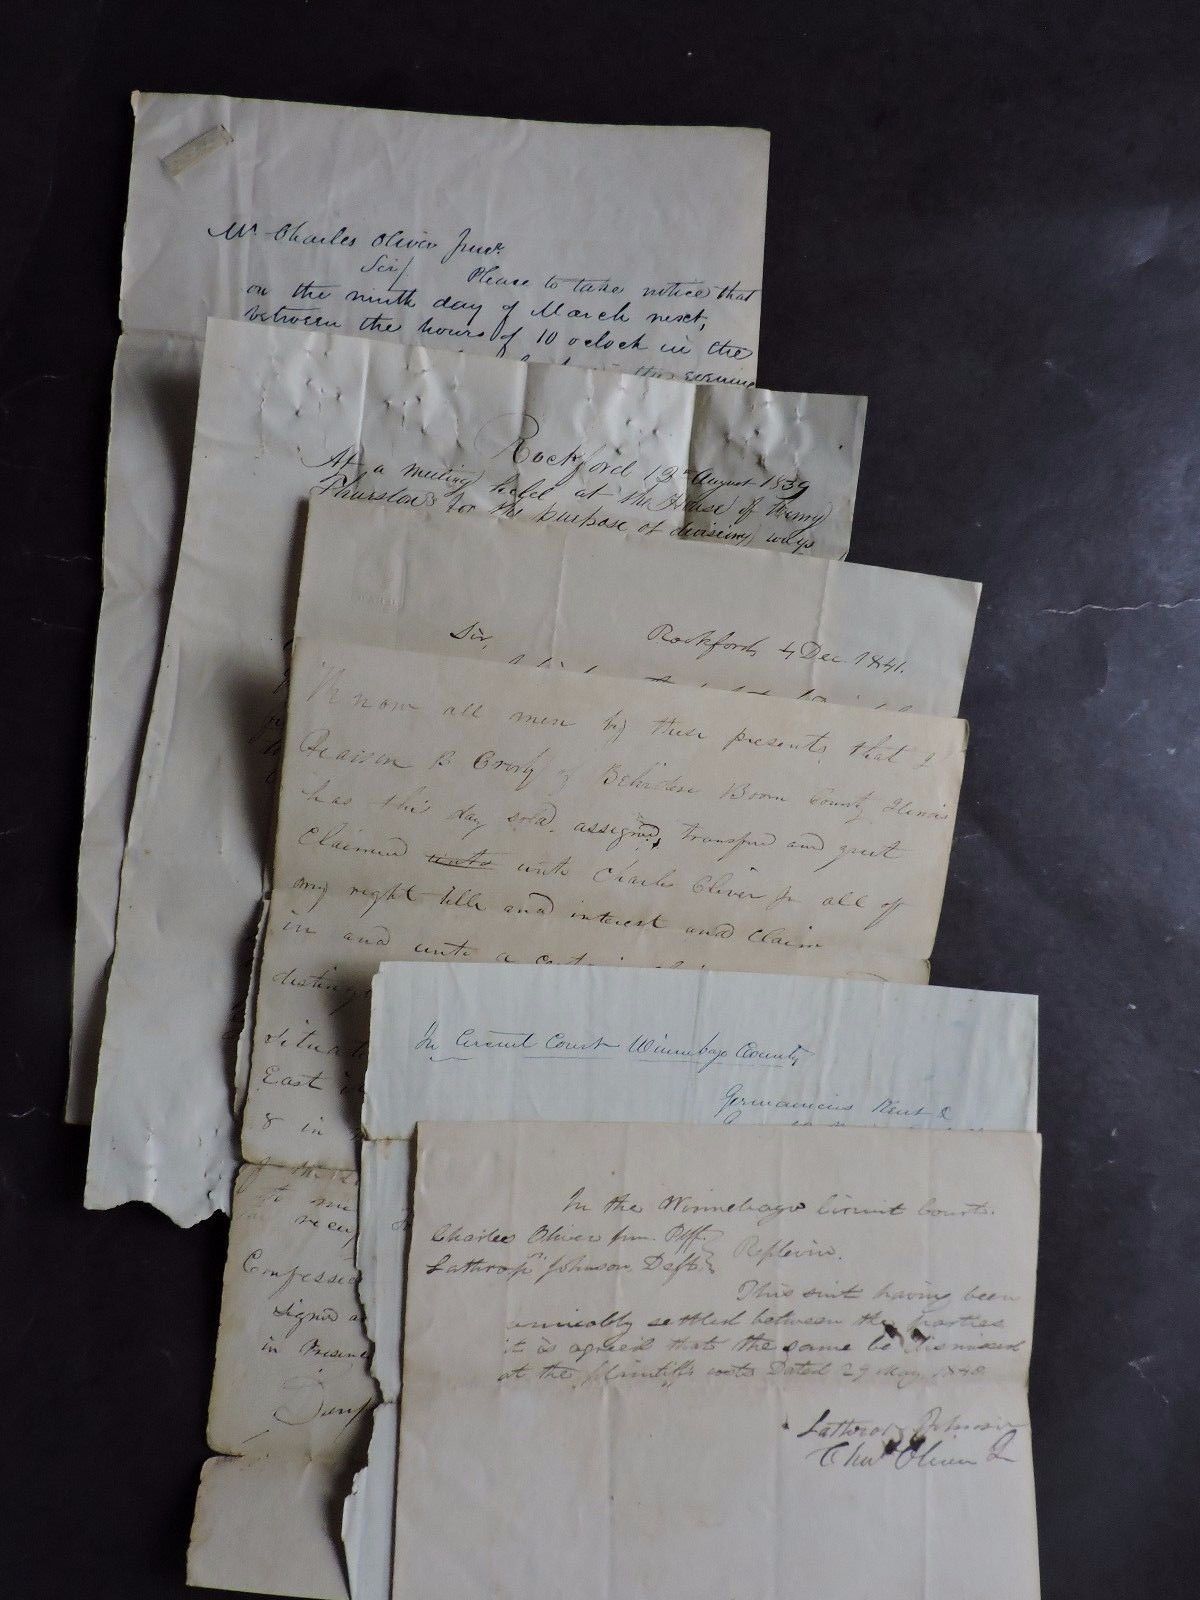 Mr. Charles Oliver Junr.
Sir, Please to take notice that
on the ninth day of March next,
between the hours of 10 oclock in the
the evening
Rockford 13th August 1839
At a meeting held at the House of Henry
Thurston's for the purpose of devising ways
Rockford 4 Dec 1841.
Sir,
Know all men by these presents that I
Reason B Crosby of Belvidere Boon County Ilinois
has this day sold, assigned, transfed and quit
Claimed unto unto Charles Oliver Jr all off
my right title and interest and claim
in and unto a
disting
Situate
East
8 in
Confessed
Signed a
in Presenc
In Circuit Court Winnebago County
Germanicus Kent &
In the Winnebago Circuit Court.
Charles Oliver jun. Plff.
vs. Replevin.
Lathrop Johnson Deft.
This suit having been
amicably settled between the parties
it is agreed that the same be dismissed
at the plaintiffs costs Dated 29 May 1840
Lathrop Johnson
Chas Oliver Jr